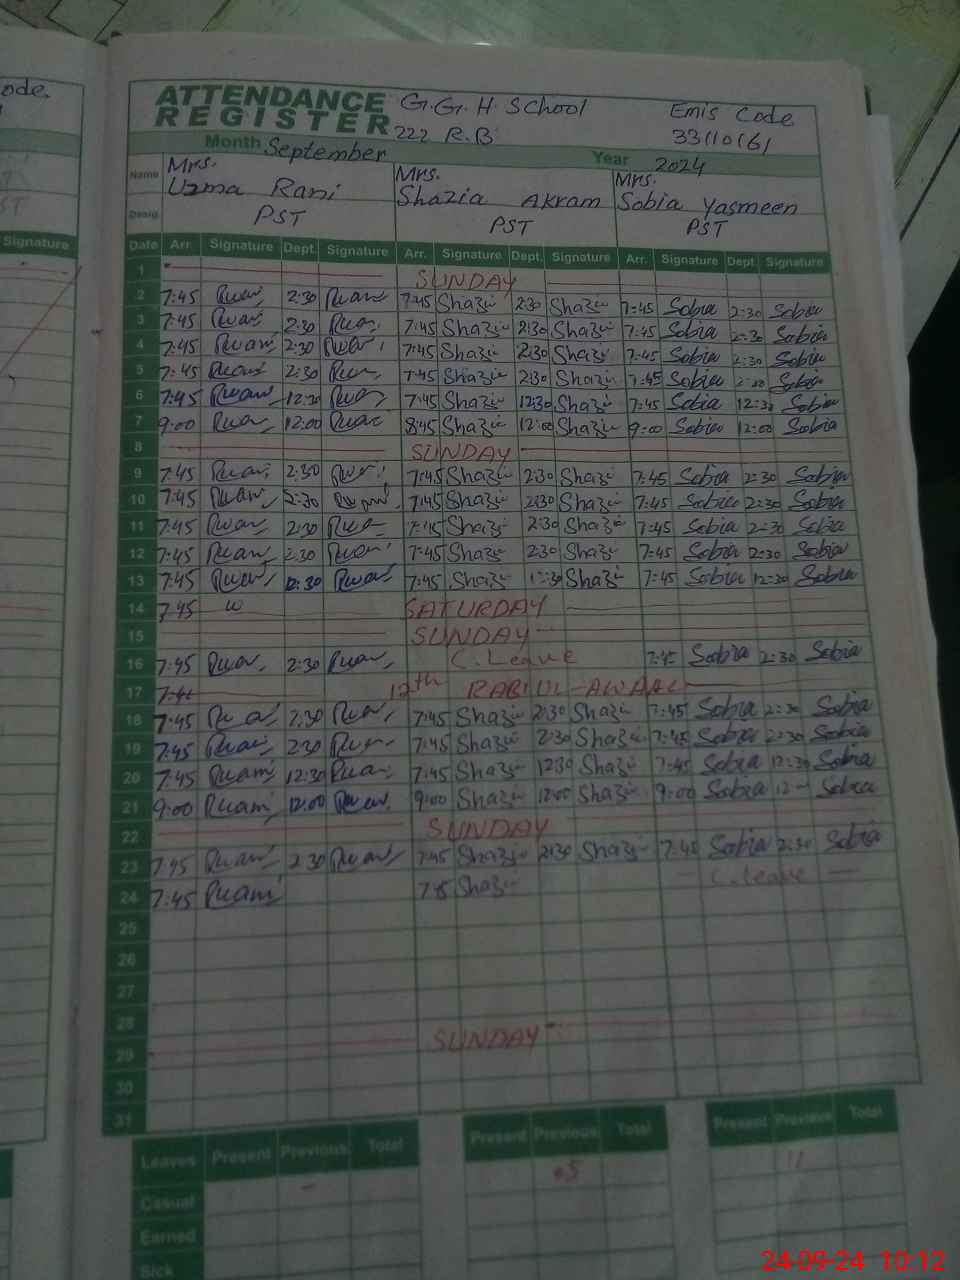 ode
Signature
ATTENDANCE REGISTER
G.G.H.School
222 R.B
Emis Code
33110161
Month September Year 2024
Name Mrs. Uzma Rani Mrs. Shazia Akram Mrs. Sobia Yasmeen
Desig. PST PST PST
Date Arr. Signature Dept. Signature Arr. Signature Dept. Signature Arr. Signature Dept. Signature
1 SUNDAY
2 7:45 2:30 7:45 Shazi 2:30 Shazi 7:45 Sobia 2:30 Sobia
3 7:45 2:30 7:45 Shazi 2:30 Shazi 7:45 Sobia 2:30 Sobia
4 7:45 2:30 7:45 Shazi 2:30 Shazi 7:45 Sobia 2:30 Sobia
5 7:45 2:30 7:45 Shazi 2:30 Shazi 7:45 Sobia Sobia
6 7:45 12:30 7:45 Shazi 12:30 Shazi 7:45 Sobia 12:30 Sobia
7 9:00 12:00 8:45 Shazi 12:00 Shazi 9:00 Sobia 12:00 Sobia
8 SUNDAY
9 7:45 2:30 7:45 Shazi 2:30 Shazi 7:45 Sobia 2:30 Sobia
10 7:45 2:30 7:45 Shazi 2:30 Shazi 7:45 Sobia 2:30 Sobia
11 7:45 2:30 7:45 Shazi 2:30 Shazi 7:45 Sobia 2:30 Sobia
12 7:45 2:30 7:45 Shazi 2:30 Shazi 7:45 Sobia 2:30 Sobia
13 7:45 12:30 7:45 Shazi 12:30 Shazi 7:45 Sobia 12:30 Sobia
14 7:45 SATURDAY
15 SUNDAY
16 7:45 2:30 C.Leave 7:45 Sobia 2:30 Sobia
17 12th RABIUL-AWAAL
18 7:45 2:30 7:45 Shazi 2:30 Shazi 7:45 Sobia 2:30 Sobia
19 7:45 2:30 7:45 Shazi 2:30 Shazi 7:45 Sobia 2:30 Sobia
20 7:45 12:30 7:45 Shazi 12:30 Shazi 7:45 Sobia 12:30 Sobia
21 9:00 12:00 9:00 Shazi 12:00 Shazi 9:00 Sobia 12 Sobia
22 SUNDAY
23 7:45 2:30 7:45 Shazi 2:30 Shazi 7:45 Sobia 2:30 Sobia
24 7:45 7:45 Shazi C.Leave
25
26
27
28
29 SUNDAY
30
31
Leaves Present Previous Total Present Previous Total Present Previous Total
Casual - 05 11
Earned
Sick
24-09-24 10:12